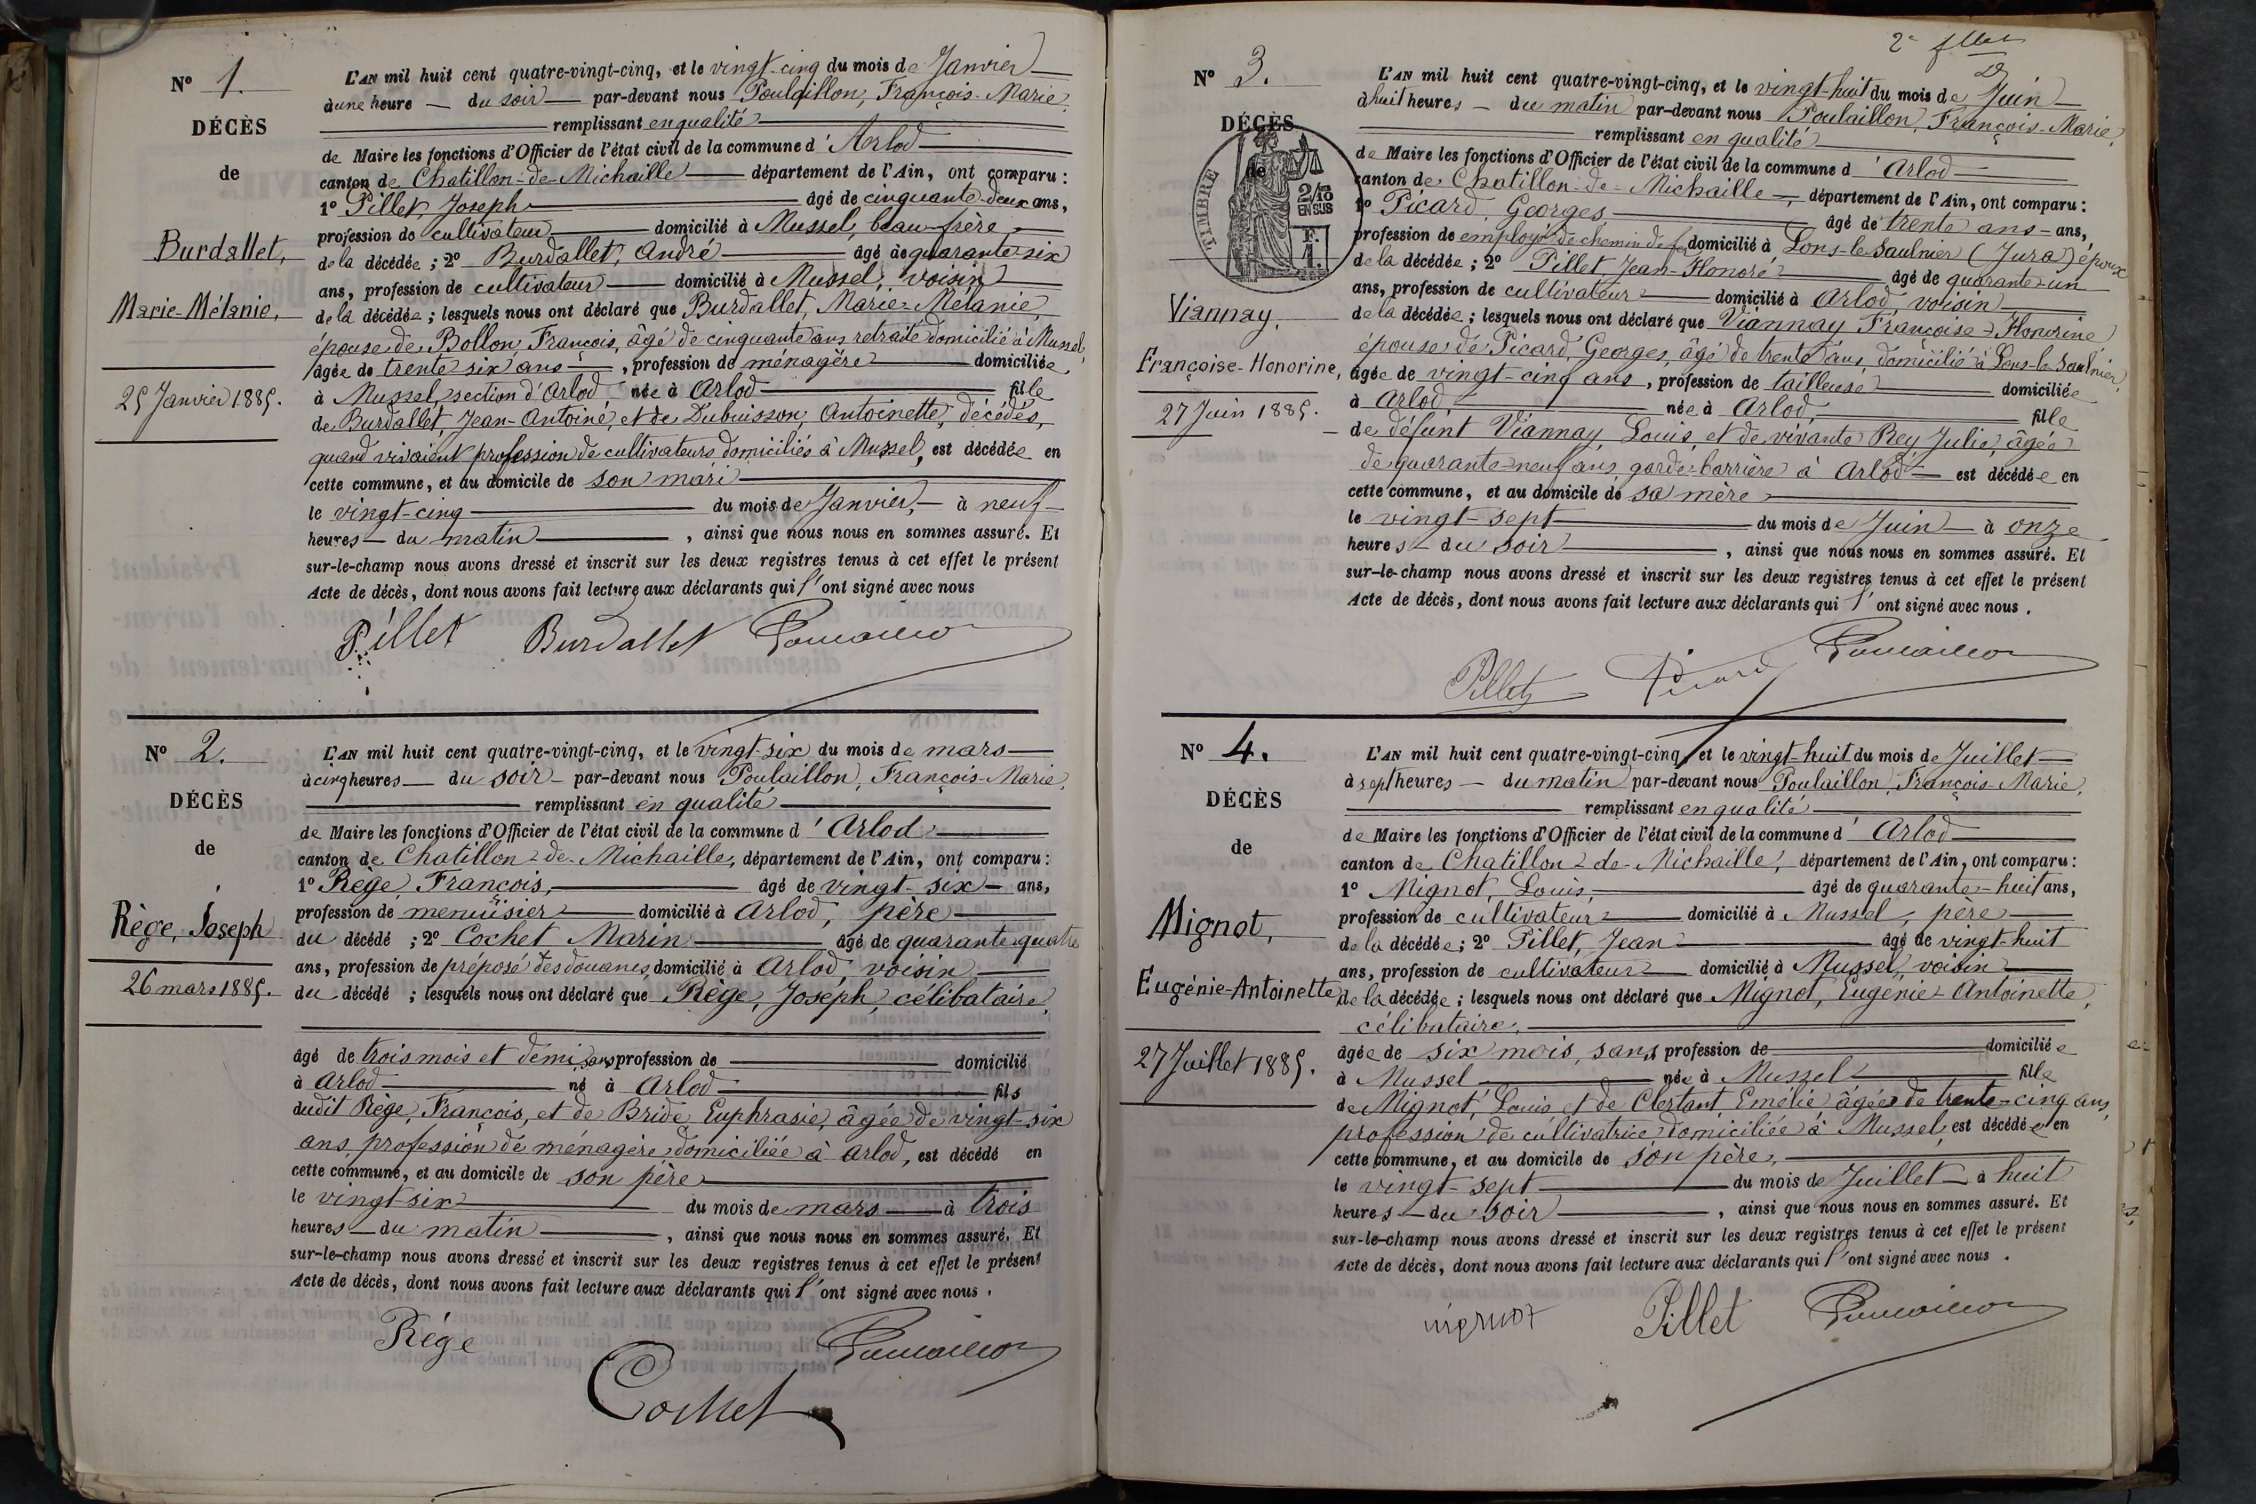 N° 1.
DÉCÈS
de
Burdallet,
Marie-Mélanie,
25 Janvier 1885.
L'AN mil huit cent quatre-vingt-cinq, et le vingt-cinq du mois de Janvier
à une heure du soir par-devant nous Poulaillon, François-Marie,
remplissant en qualité
de Maire les fonctions d'Officier de l'état civil de la commune d'Arlod
canton de Chatillon-de-Michaille département de l'Ain, ont comparu :
1° Pillet, Joseph âgé de cinquante-deux ans,
profession de cultivateur domicilié à Mussel, beau-frère
de la décédée ; 2° Burdallet, André âgé de quarante-six
ans, profession de cultivateur domicilié à Mussel, voisin
de la décédée ; lesquels nous ont déclaré que Burdallet, Marie-Mélanie,
épouse de Bollon, François, âgé de cinquante ans retraité domicilié à Mussel,
âgée de trente six ans, profession de ménagère domiciliée
à Mussel, section d'Arlod née à Arlod fille
de Burdallet, Jean-Antoine, et de Dubuisson, Antoinette, décédés,
quand vivaient profession de cultivateurs domiciliés à Mussel, est décédée en
cette commune, et au domicile de son mari
le vingt-cinq du mois de Janvier, à neuf
heures du matin, ainsi que nous nous en sommes assuré. Et
sur-le-champ nous avons dressé et inscrit sur les deux registres tenus à cet effet le présent
Acte de décès, dont nous avons fait lecture aux déclarants qui l'ont signé avec nous
Pillet Burdallet Poulaillon
N° 2.
DÉCÈS
de
Rège, Joseph
26 mars 1885.
L'AN mil huit cent quatre-vingt-cinq, et le vingt-six du mois de mars
à cinq heures du soir par-devant nous Poulaillon, François-Marie,
remplissant en qualité
de Maire les fonctions d'Officier de l'état civil de la commune d'Arlod
canton de Chatillon-de-Michaille, département de l'Ain, ont comparu :
1° Rège, François, âgé de vingt-six ans,
profession de menuisier domicilié à Arlod, père
du décédé ; 2° Cochet Marin âgé de quarante-quatre
ans, profession de préposé des douanes, domicilié à Arlod, voisin
du décédé ; lesquels nous ont déclaré que Rège, Joseph, célibataire,
âgé de trois mois et demi, sans profession de domicilié
à Arlod né à Arlod fils
dudit Rège, François, et de Bride, Euphrasie, âgée de vingt-six
ans, profession de ménagère domiciliée à Arlod, est décédé en
cette commune, et au domicile de son père
le vingt-six du mois de mars à trois
heures du matin, ainsi que nous nous en sommes assuré. Et
sur-le-champ nous avons dressé et inscrit sur les deux registres tenus à cet effet le présent
Acte de décès, dont nous avons fait lecture aux déclarants qui l'ont signé avec nous.
Rége Poulaillon
Cochet
2e
N° 3.
DÉCÈS
de
TIMBRE
2/10 EN SUS
Viannay,
Françoise-Honorine,
27 Juin 1885.
L'AN mil huit cent quatre-vingt-cinq, et le vingt-huit du mois de Juin
à huit heures du matin par-devant nous Poulaillon, François-Marie,
remplissant en qualité
de Maire les fonctions d'Officier de l'état civil de la commune d'Arlod
canton de Chatillon-de-Michaille, département de l'Ain, ont comparu :
1° Picard, Georges âgé de trente ans ans,
profession de employé de chemin de fer domicilié à Lons-le-Saulnier (Jura) époux
de la décédée ; 2° Pillet, Jean-Honoré âgé de quarante-un
ans, profession de cultivateur domicilié à Arlod, voisin
de la décédée ; lesquels nous ont déclaré que Viannay Françoise-Honorine,
épouse de Picard, Georges, âgé de trente ans, domicilié à Lons-le-Saulnier,
âgée de vingt-cinq ans, profession de tailleuse domiciliée
à Arlod née à Arlod, fille
de défunt Viannay, Louis, et de vivante Rey, Julie, âgée
de quarante-neuf ans, garde-barrière à Arlod est décédée en
cette commune, et au domicile de sa mère
le vingt-sept du mois de Juin à onze
heures du soir, ainsi que nous nous en sommes assuré. Et
sur-le-champ nous avons dressé et inscrit sur les deux registres tenus à cet effet le présent
Acte de décès, dont nous avons fait lecture aux déclarants qui l'ont signé avec nous.
Pillet Picard Poulaillon
N° 4.
DÉCÈS
de
Mignot,
Eugénie-Antoinette
27 Juillet 1885.
L'AN mil huit cent quatre-vingt-cinq, et le vingt-huit du mois de Juillet
à sept heures du matin par-devant nous Poulaillon, François-Marie,
remplissant en qualité
de Maire les fonctions d'Officier de l'état civil de la commune d'Arlod
canton de Chatillon-de-Michaille, département de l'Ain, ont comparu :
1° Mignot, Louis, âgé de quarante-huit ans,
profession de cultivateur domicilié à Mussel, père
de la décédée ; 2° Pillet, Jean âgé de vingt-huit
ans, profession de cultivateur domicilié à Mussel, voisin
de la décédée ; lesquels nous ont déclaré que Mignot, Eugénie-Antoinette,
célibataire,
âgée de six mois, sans profession de domiciliée
à Mussel née à Mussel fille
de Mignot, Louis et de Clertant, Emélie, âgée de trente-cinq ans,
profession de cultivatrice, domiciliée à Mussel, est décédée en
cette commune, et au domicile de son père,
le vingt-sept du mois de Juillet à huit
heures du soir, ainsi que nous nous en sommes assuré. Et
sur-le-champ nous avons dressé et inscrit sur les deux registres tenus à cet effet le présent
Acte de décès, dont nous avons fait lecture aux déclarants qui l'ont signé avec nous.
mignot Pillet Poulaillon